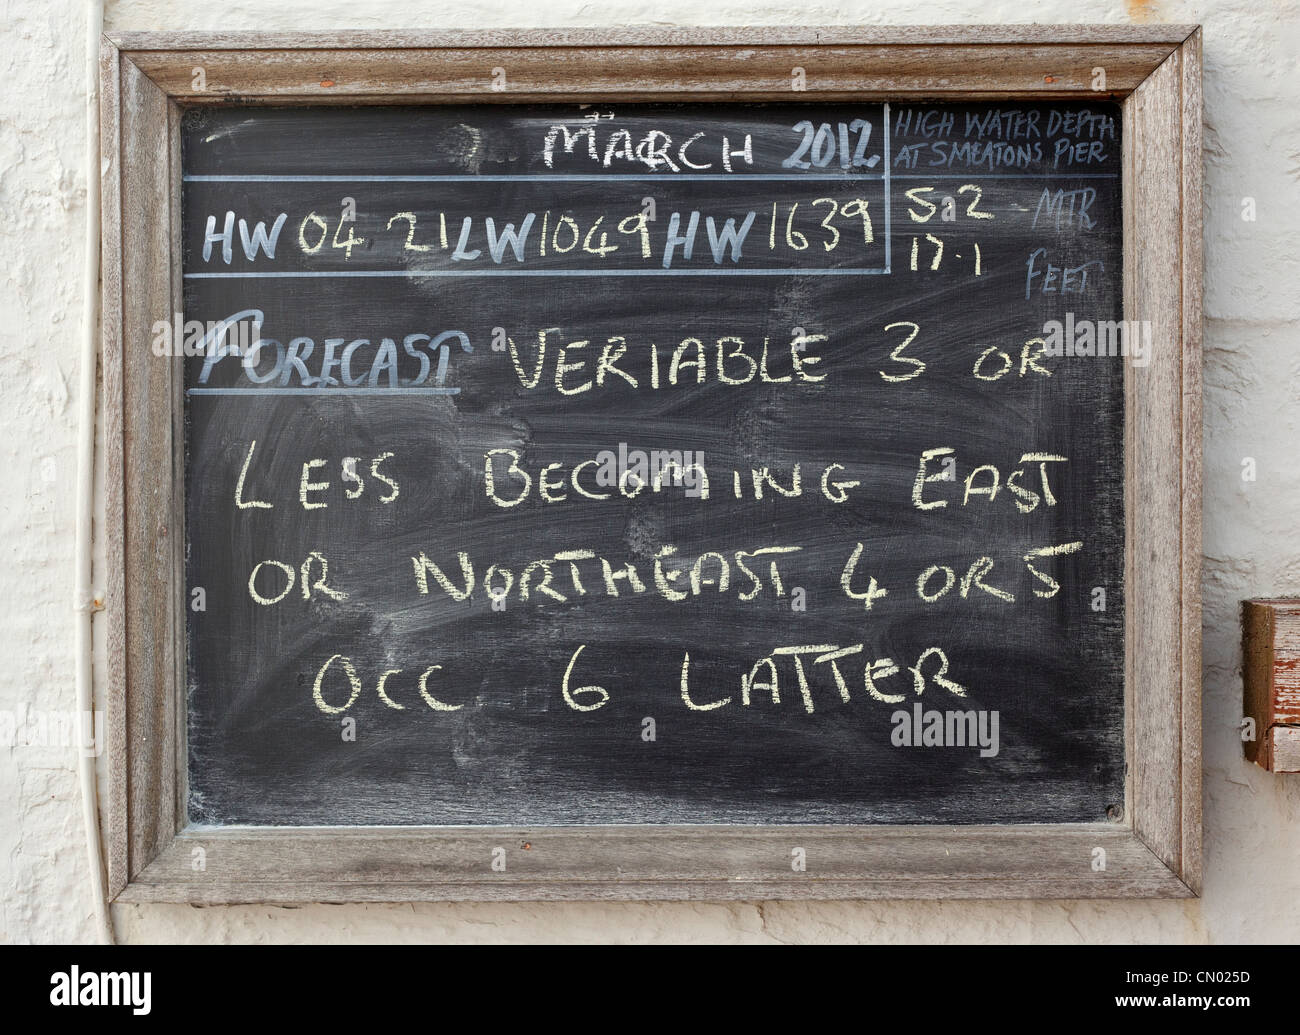 MARCH 2012
HIGH WATER DEPTH
AT SMEATONS PIER
HW 04 21 LW 1049 HW 1639
5.2 MTR
17.1 FEET
FORECAST VERIABLE 3 OR
LESS BECOMING EAST
OR NORTHEAST 4 OR 5
OCC 6 LATTER
alamy
Image ID: CN025D
www.alamy.com